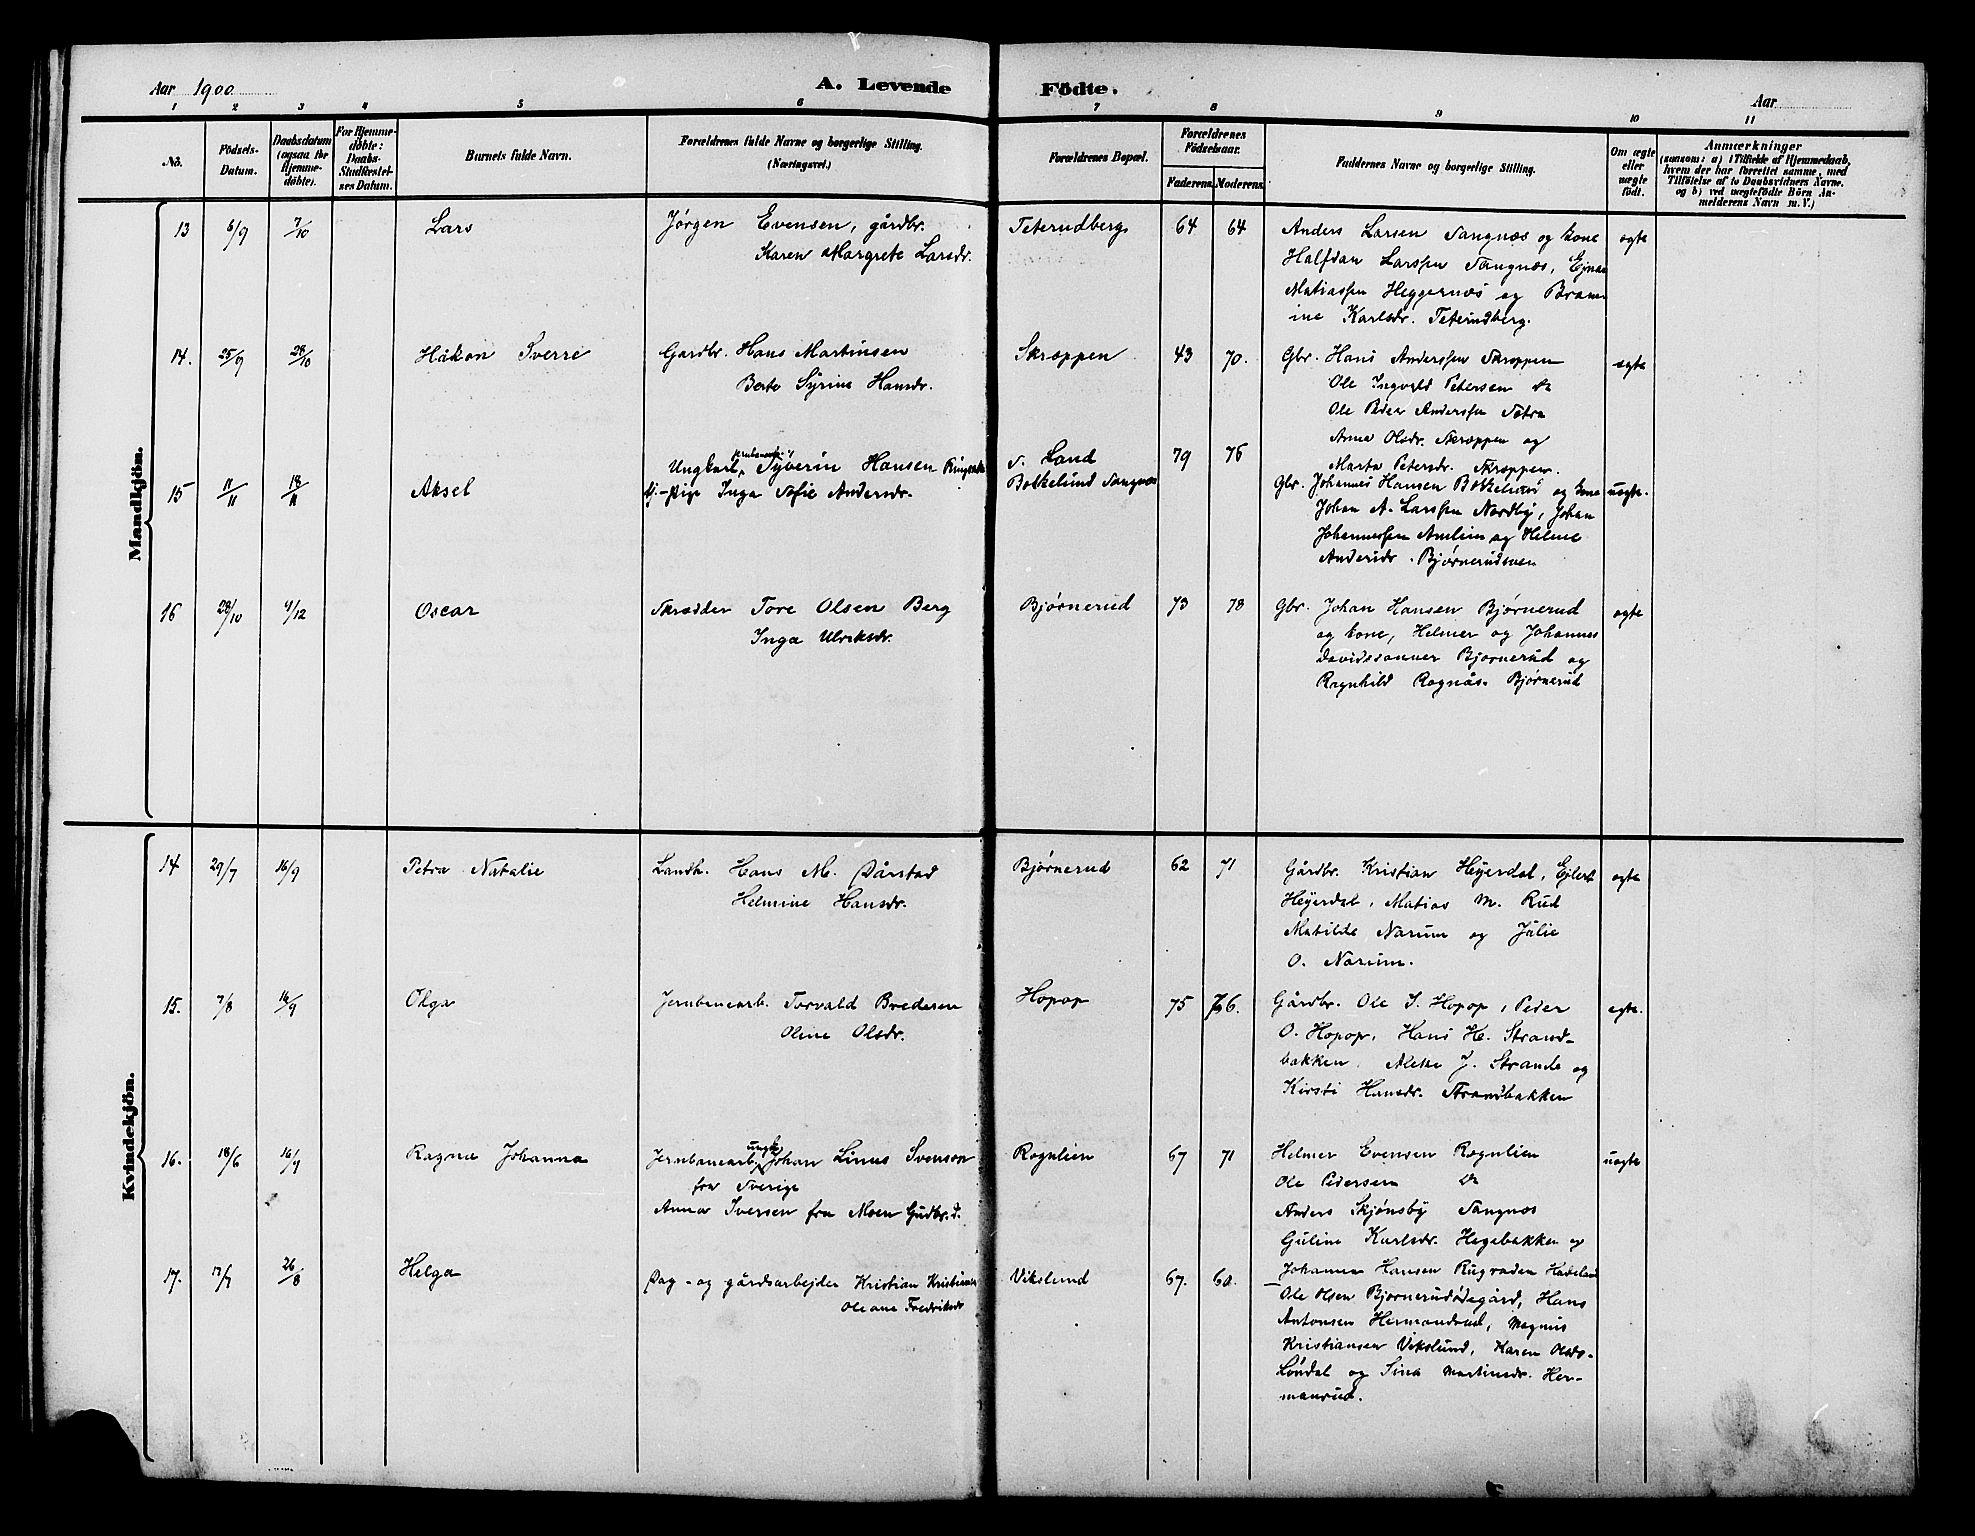 Aar 1900
A. Levende Födte.
Aar
1 2 3 4 5 6 7 8 9 10 11
No.
Födsels-
Datum.
Daabsdatum
(ogsaa for
Hjemme-
döbte).
For Hjemme-
döbte:
Daabs-
Stadfæstel-
ses Datum.
Barnets fulde Navn.
Forældrenes fulde Navne og borgerlige Stilling.
(Næringsvei.)
Forældrenes Bopæl.
Forældrenes
Födselsaar.
Faderens. Moderens.
Faddernes Navne og borgerlige Stilling.
Om ægte
eller
uægte
födt.
Anmærkninger
(saasom: a) i Tilfælde af Hjemmedaab,
hvem der har forrettet samme, med
Tilföielse af to Daabsvidners Navne.
og b) ved uægtefödte Börn An-
melderens Navn m. V.)
Mandkjön.
13 6/9 7/10 Lars
Jørgen Evensen, gårdbr.
Karen Margrete Larsdr.
Teterudberg 64 64
Anders Larsen Sangnæs og kone
Halfdan Larssen Sangnæs, Ejnar
Matiassen Heggernæs og Bram-
ine Karlsdr. Teterudberg.
ægte
14. 25/9 28/10 Håkon Sverre
Gardbr. Hans Martinsen
Berte Syrine Hansdr.
Skrøppen 43 70.
Gbr. Hans Anderssen Skrøppen
Ole Ingvald Petersen do
Ole Peder Anderssen Sætra
Anne Olsdr. Skrøppen og
Marta Petersdr. Skrøppen.
ægte
15 11/11 18/11 Aksel
Ungkarl, Syverin Hansen
Pige Inga Sofie Andersdr.
S. Land
Bokkelund Sangnæs
79 76
Gbr. Johannes Hansen og kone
Johan A. Larssen Nordby, Johan
Johannessen Amlien og Helme
Andersdr. Bjørnerudsveen
uægte.
16 28/10 9/12 Oscar
Skrædder Tore Olsen Berg
Inga Ulriksdr.
Bjørnerud 73 78
Gbr. Johan Hansen Bjørnerud
og kone, Helmer og Johannes
Davidssønner Bjørnerud og
Ragnhild Rognås. Bjørnerud
ægte
Kvindekjön.
14 29/7 16/9 Petra Natalie
Landh. Hans M. Pårstad
Helmine Hansdr.
Bjørnerud 62 71
Gårdbr. Kristian Heyerdal, Ejlert
Heyerdal, Matias M. Rud
Matilde Narum og Julie
O. Narum.
ægte
15. 7/8 16/9 Olga
Jernbanearb. Torvald Bredesen
Oline Olsdr.
Hopop 75 76.
Gårdbr. Ole I. Hopop, Peder
O. Hopop, Hans H. Strand-
bakken, Alette J. Strande og
Kirsti Hansdr. Strandbakken
ægte.
16. 18/6 16/9 Ragna Johanna
ungk.
Jernbanearb. Johan Linus Svenson
fra Sverige
Anna Iversen fra Moen Gudbr. d.
Rognlien 67 71
Helmer Evensen Rognlien
Ole Pedersen do
Anders Skjønsby Sangnæs
Guline Karlsdr. Hagebakken og
Johanne Hansen Hadeland
uægte
17. 17/7 26/8 Helga
Dag- og gårdsarbejder Kristian Kristiansen
Oleane Fredriksdr
Vikslund 67. 60.
Ole Olsen Bjørnerudødegård, Hans
Antonsen Hermandrud, Magnus
Kristiansen Vikslund, Karen Olsdr.
Løndal og Sina Martinsdr. Her-
manrud.